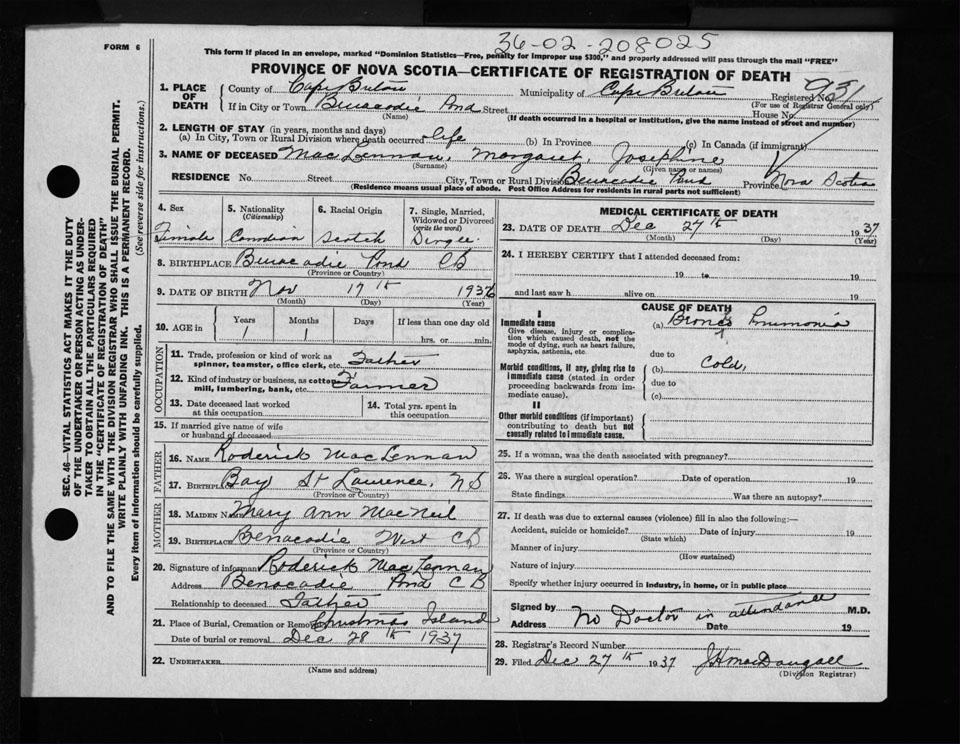 36-02-208025
FORM 6
This form if placed in an envelope, marked "Dominion Statistics—Free, penalty for improper use $300," and properly addressed will pass through the mail "FREE"
PROVINCE OF NOVA SCOTIA—CERTIFICATE OF REGISTRATION OF DEATH
1. PLACE OF DEATH
County of Cape Breton Municipality of Cape Breton Registered No. 931
(For use of Registrar General only)
If in City or Town Benacadie Pond Street House No.
(Name) (If death occurred in a hospital or institution, give the name instead of street and number)
2. LENGTH OF STAY (in years, months and days)
(a) In City, Town or Rural Division where death occurred life (b) In Province (c) In Canada (if immigrant)
3. NAME OF DECEASED MacLennan, Margaret, Josephine
(Surname) (Given name or names)
RESIDENCE No. Street City, Town or Rural Division Benacadie Pond Province Nova Scotia
(Residence means usual place of abode. Post Office Address for residents in rural parts not sufficient)
SEC. 46—VITAL STATISTICS ACT MAKES IT THE DUTY
OF THE UNDERTAKER OR PERSON ACTING AS UNDER-
TAKER TO OBTAIN ALL THE PARTICULARS REQUIRED
IN THE "CERTIFICATE OF REGISTRATION OF DEATH"
AND TO FILE THE SAME WITH THE DIVISION REGISTRAR WHO SHALL ISSUE THE BURIAL PERMIT.
WRITE PLAINLY WITH UNFADING INK. THIS IS A PERMANENT RECORD.
Every item of information should be carefully supplied. (See reverse side for instructions.)
4. Sex
Female
5. Nationality
(Citizenship)
Canadian
6. Racial Origin
Scotch
7. Single, Married,
Widowed or Divorced
(write the word)
8. BIRTHPLACE Benacadie Pond CB
(Province or Country)
9. DATE OF BIRTH Nov 17th 1936
(Month) (Day) (Year)
10. AGE in Years Months Days If less than one day old
1 1 hrs. or min.
OCCUPATION
11. Trade, profession or kind of work as
spinner, teamster, office clerk, etc. Father
12. Kind of industry or business, as cotton
mill, lumbering, bank, etc. Farmer
13. Date deceased last worked
at this occupation
14. Total yrs. spent in
this occupation
15. If married give name of wife
or husband of deceased
FATHER
16. NAME Roderick MacLennan
17. BIRTHPLACE Bay St Lawrence, NS
(Province or Country)
MOTHER
18. MAIDEN NAME Mary Ann MacNeil
19. BIRTHPLACE Benacadie West CB
(Province or Country)
20. Signature of informant Roderick MacLennan
Address Benacadie Pond CB
Relationship to deceased Father
21. Place of Burial, Cremation or Removal Christmas Island
Date of burial or removal Dec 28th 1937
22. UNDERTAKER
(Name and address)
MEDICAL CERTIFICATE OF DEATH
23. DATE OF DEATH Dec 27th 1937
(Month) (Day) (Year)
24. I HEREBY CERTIFY that I attended deceased from:
19 to 19
and last saw h alive on 19
CAUSE OF DEATH
I
Immediate cause
Give disease, injury or complica-
tion which caused death, not the
mode of dying, such as heart failure,
asphyxia, asthenia, etc.
(a) Pnumonia
due to
Morbid conditions, if any, giving rise to
immediate cause (stated in order
proceeding backwards from im-
mediate cause).
(b) Cold,
due to
(c)
II
Other morbid conditions (if important)
contributing to death but not
causally related to immediate cause.
25. If a woman, was the death associated with pregnancy?
26. Was there a surgical operation? Date of operation 19
State findings Was there an autopsy?
27. If death was due to external causes (violence) fill in also the following:—
Accident, suicide or homicide? Date of injury 19
(State which)
Manner of injury
(How sustained)
Nature of injury
Specify whether injury occurred in industry, in home, or in public place
Signed by No Doctor in attendance M.D.
Address Date 19
28. Registrar's Record Number
29. Filed Dec 27th 1937 JH MacDougall
(Division Registrar)